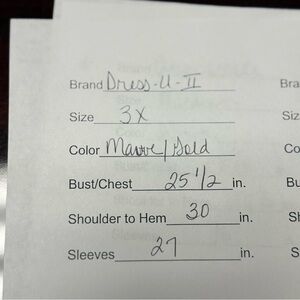 Brand Dress-U-II Bra
Size 3X Siz
Color Mauve/Gold Co
Bust/Chest 25 1/2 in. Bu
Shoulder to Hem 30 in. Sh
Sleeves 27 in. S